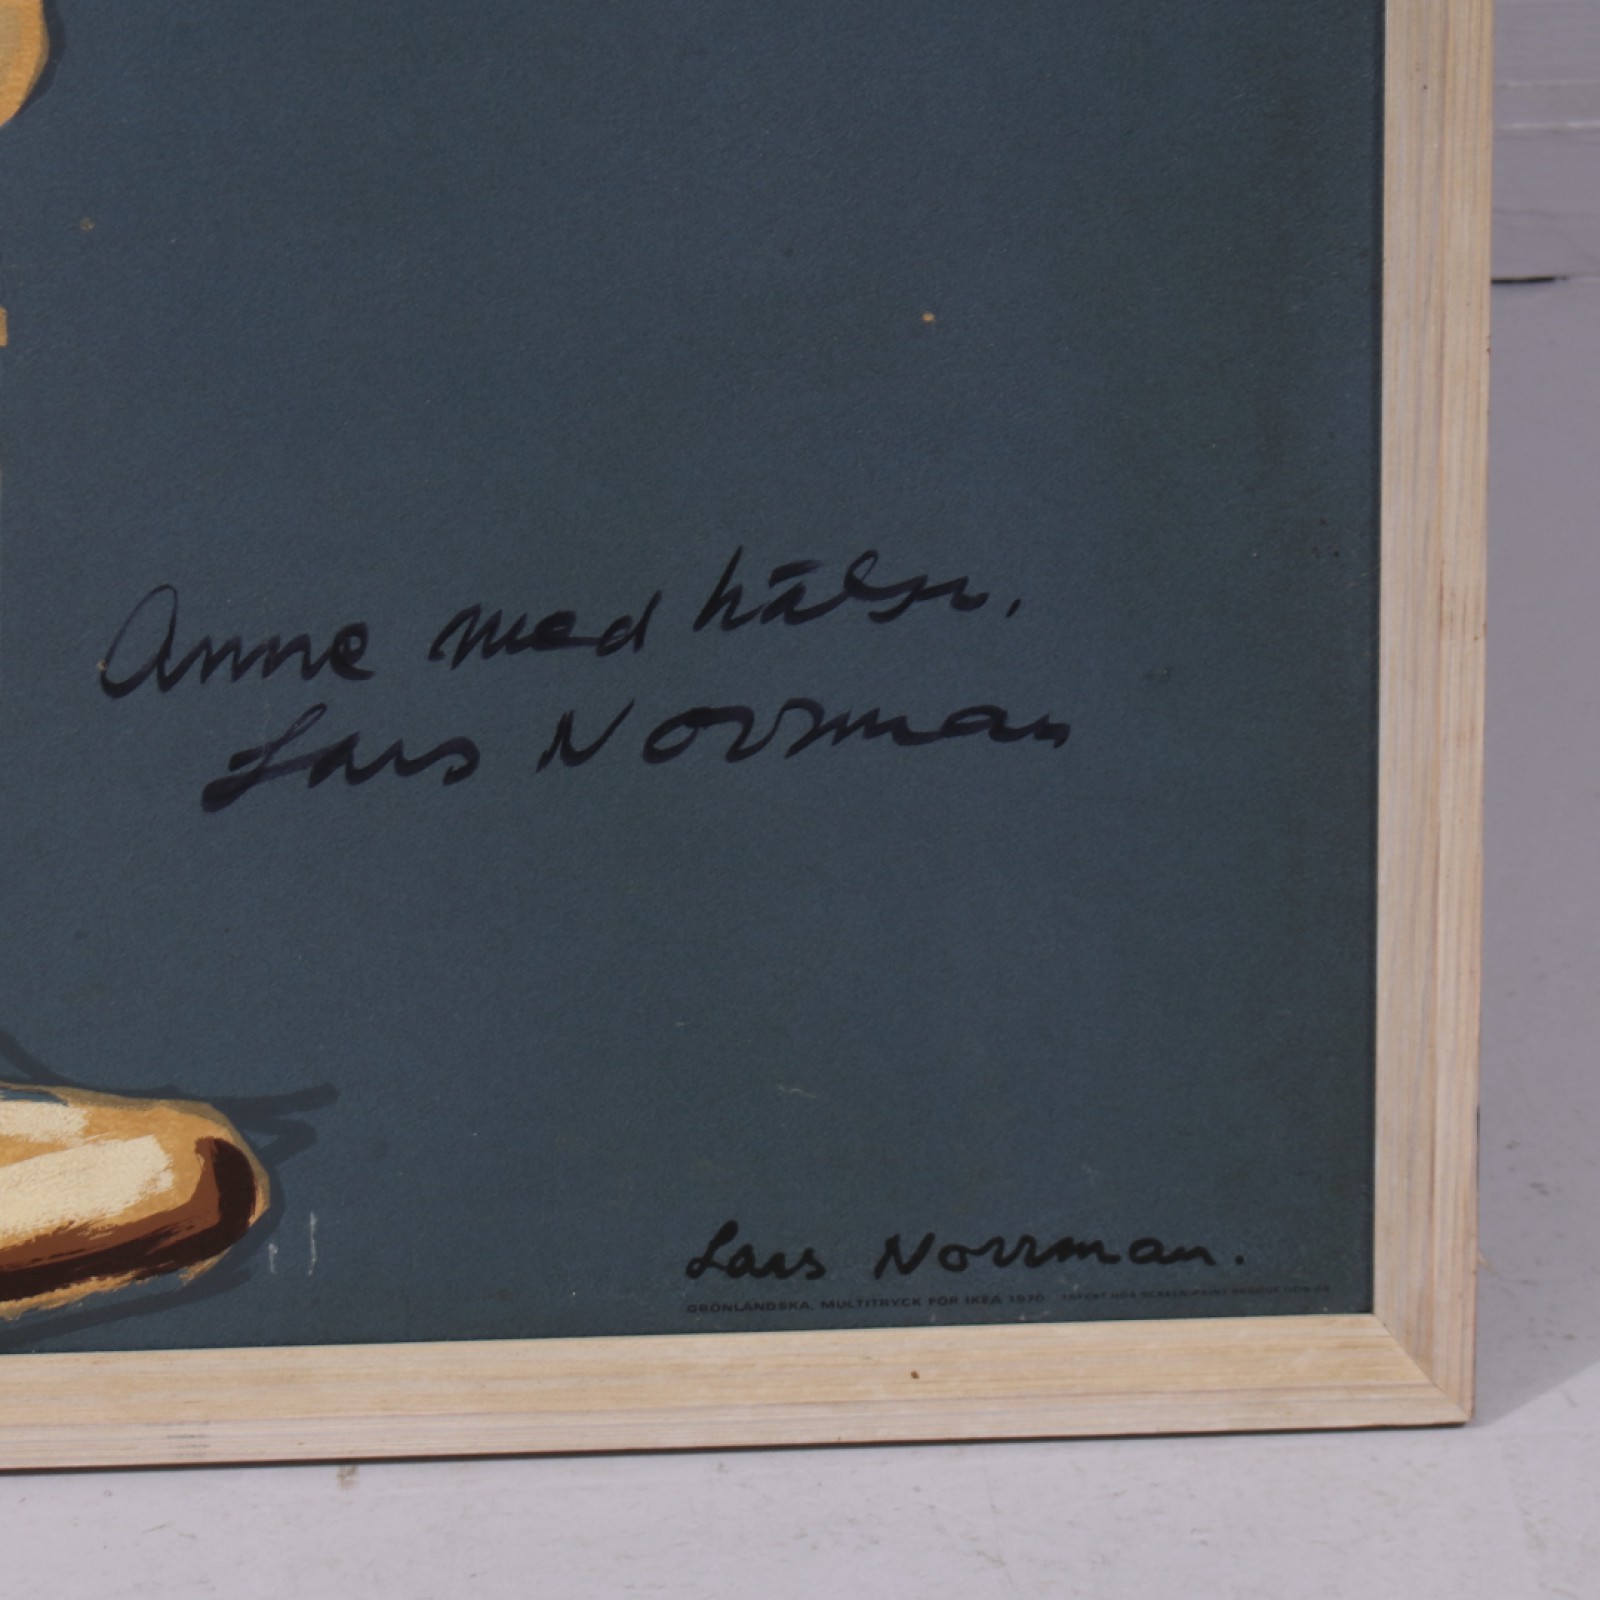 Anne med hälsn.
Lars Norrman
Lars Norrman.
GRÖNLÄNDSKA, MULTITRYCK FÖR IKEA 1970